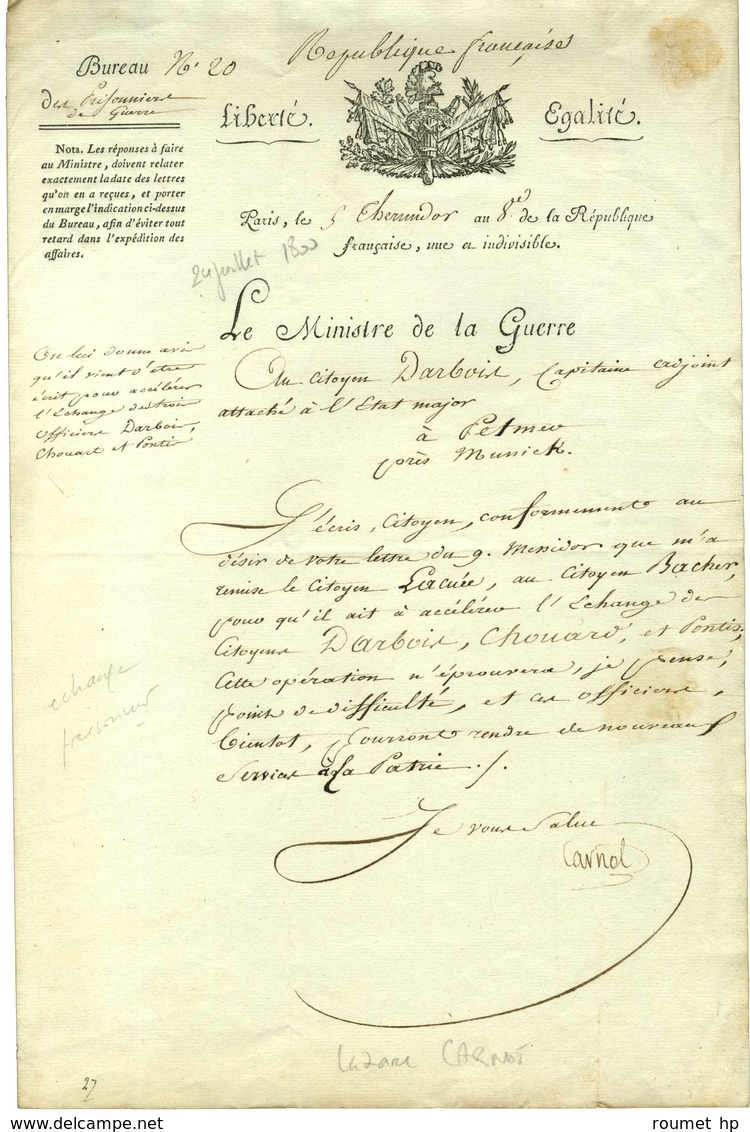 Republique française
Bureau N.° 20
des Prisonniers
de Guerre
Liberté.
Egalité.
Nota. Les réponses à faire
au Ministre, doivent relater
exactement la date des lettres
qu'on en a reçues, et porter
en marge l'indication ci-dessus
du Bureau, afin d'éviter tout
retard dans l'expédition des
affaires.
Paris, le 5 Thermidor an 8.e de la République
française, une et indivisible.
24 juillet 1800
Le Ministre de la Guerre
On lui donne avis
qu'il vient d'etre
écrit pour accélérer
l'Echange des trois
officiers Darbois,
Chouart et Pontis
Au Citoyen Darbois, Capitaine adjoint
attaché à l'Etat major
à Petmer
près Munick.
J'écris, Citoyen, conformement au
désir de votre lettre du 9. Messidor que m'a
remise le Citoyen Lacuée, au Citoyen Bacher,
pour qu'il ait à accélérer l'Echange des
Citoyens Darbois, Chouard, et Pontis;
Cette opération n'éprouvera, je pense,
point de difficulté, et ces officiers,
bientot, pourront rendre de nouveaux
Services à la Patrie ./.
echange
prisonnier
Je vous salue
Carnot
Lazare CARNOT
27
www.roumet hp